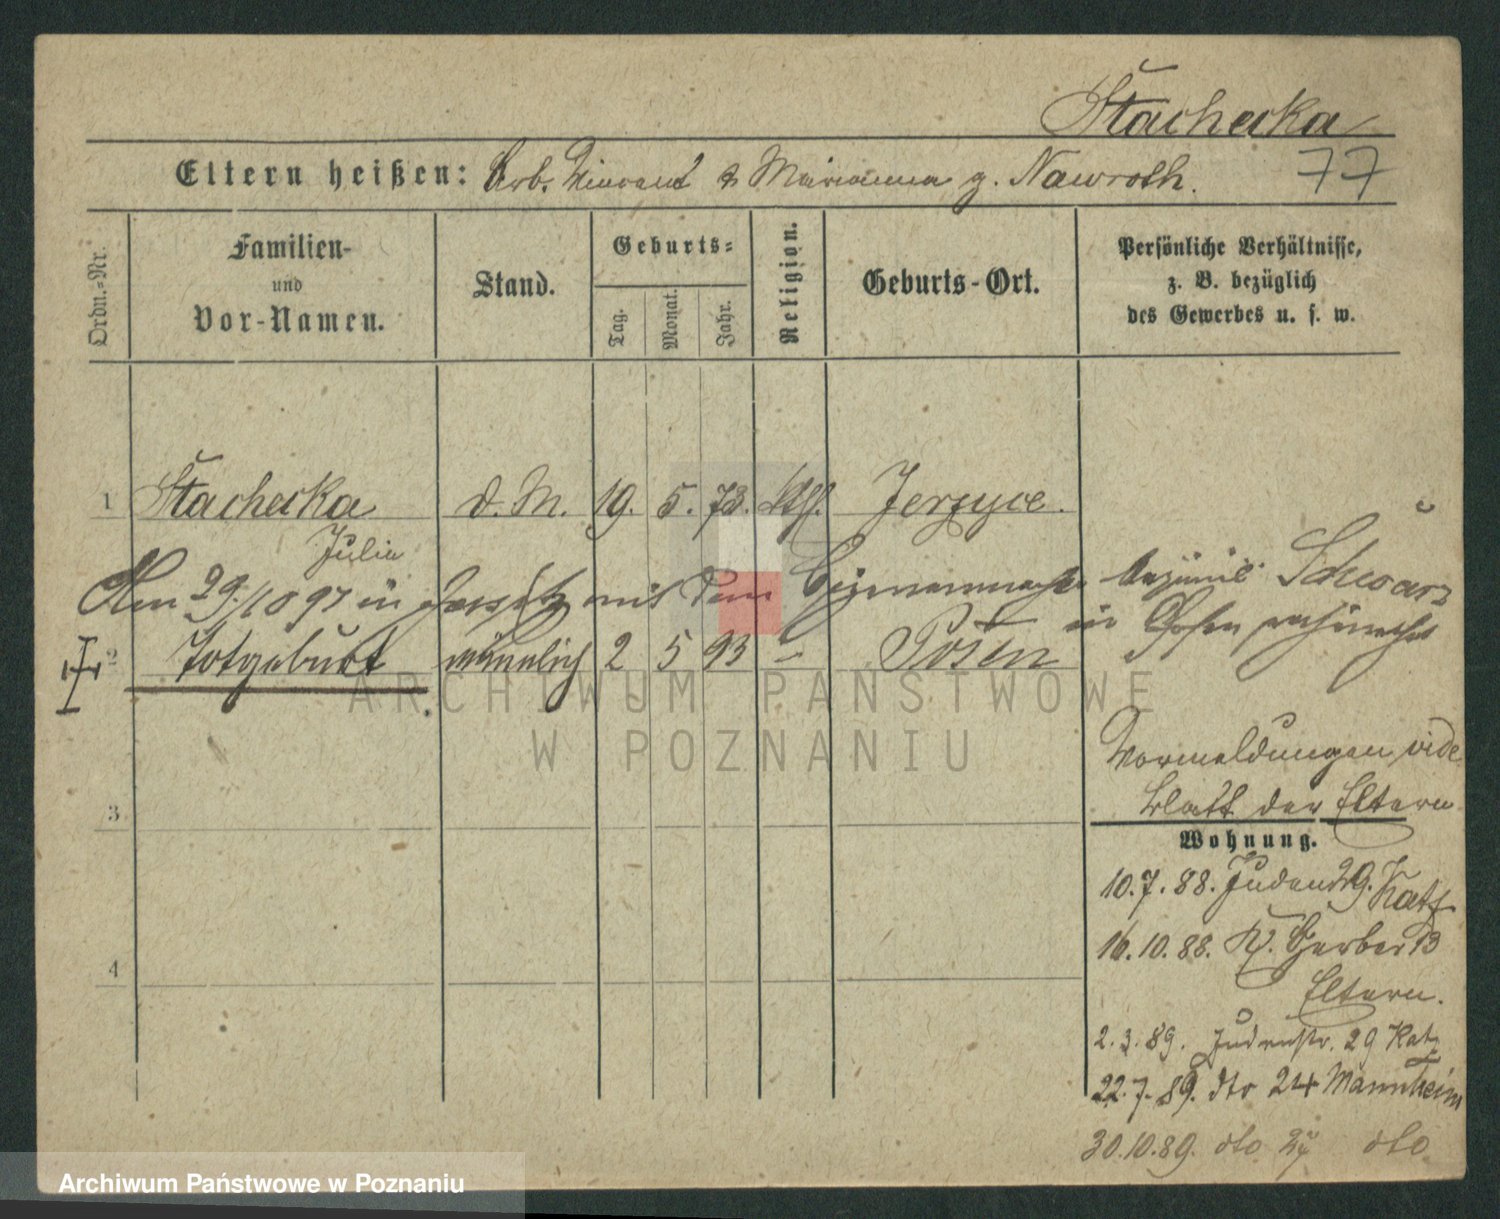 Stachecka
Eltern heißen: Arb. Vincent & Marianna g. Nawroth.
77
Ordn.-Nr.
Familien-
und
Vor-Namen.
Stand.
Geburts-
Tag.
Monat.
Jahr.
Religion.
Geburts-Ort.
Persönliche Verhältnisse,
z. B. bezüglich
des Gewerbes u. s. w.
1 Stachecka d. M. 19. 5. 73. kth. Jerzyce.
Julia
Am 29./10 97 in Jersitz mit dem Schwarz
in Posen
2 Totgeburt männlich 2 5 93 - Posen
ARCHIWUM PAŃSTWOWE
W POZNANIU
Vormeldungen vide
blatt der Eltern
3
Wohnung.
10.7.88. Judenstr 29. Katz
16.10.88. Kl. Gerber 13
4
Eltern.
2.3.89. Judenstr. 29 Katz
22.7.89. dto 24 Mannheim
30.10.89. dto 24 dto
Archiwum Państwowe w Poznaniu